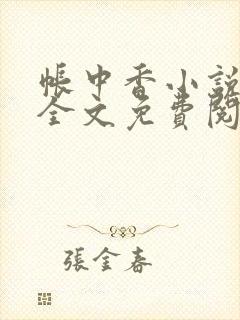 帳中香小說
全文免費閱
張金春